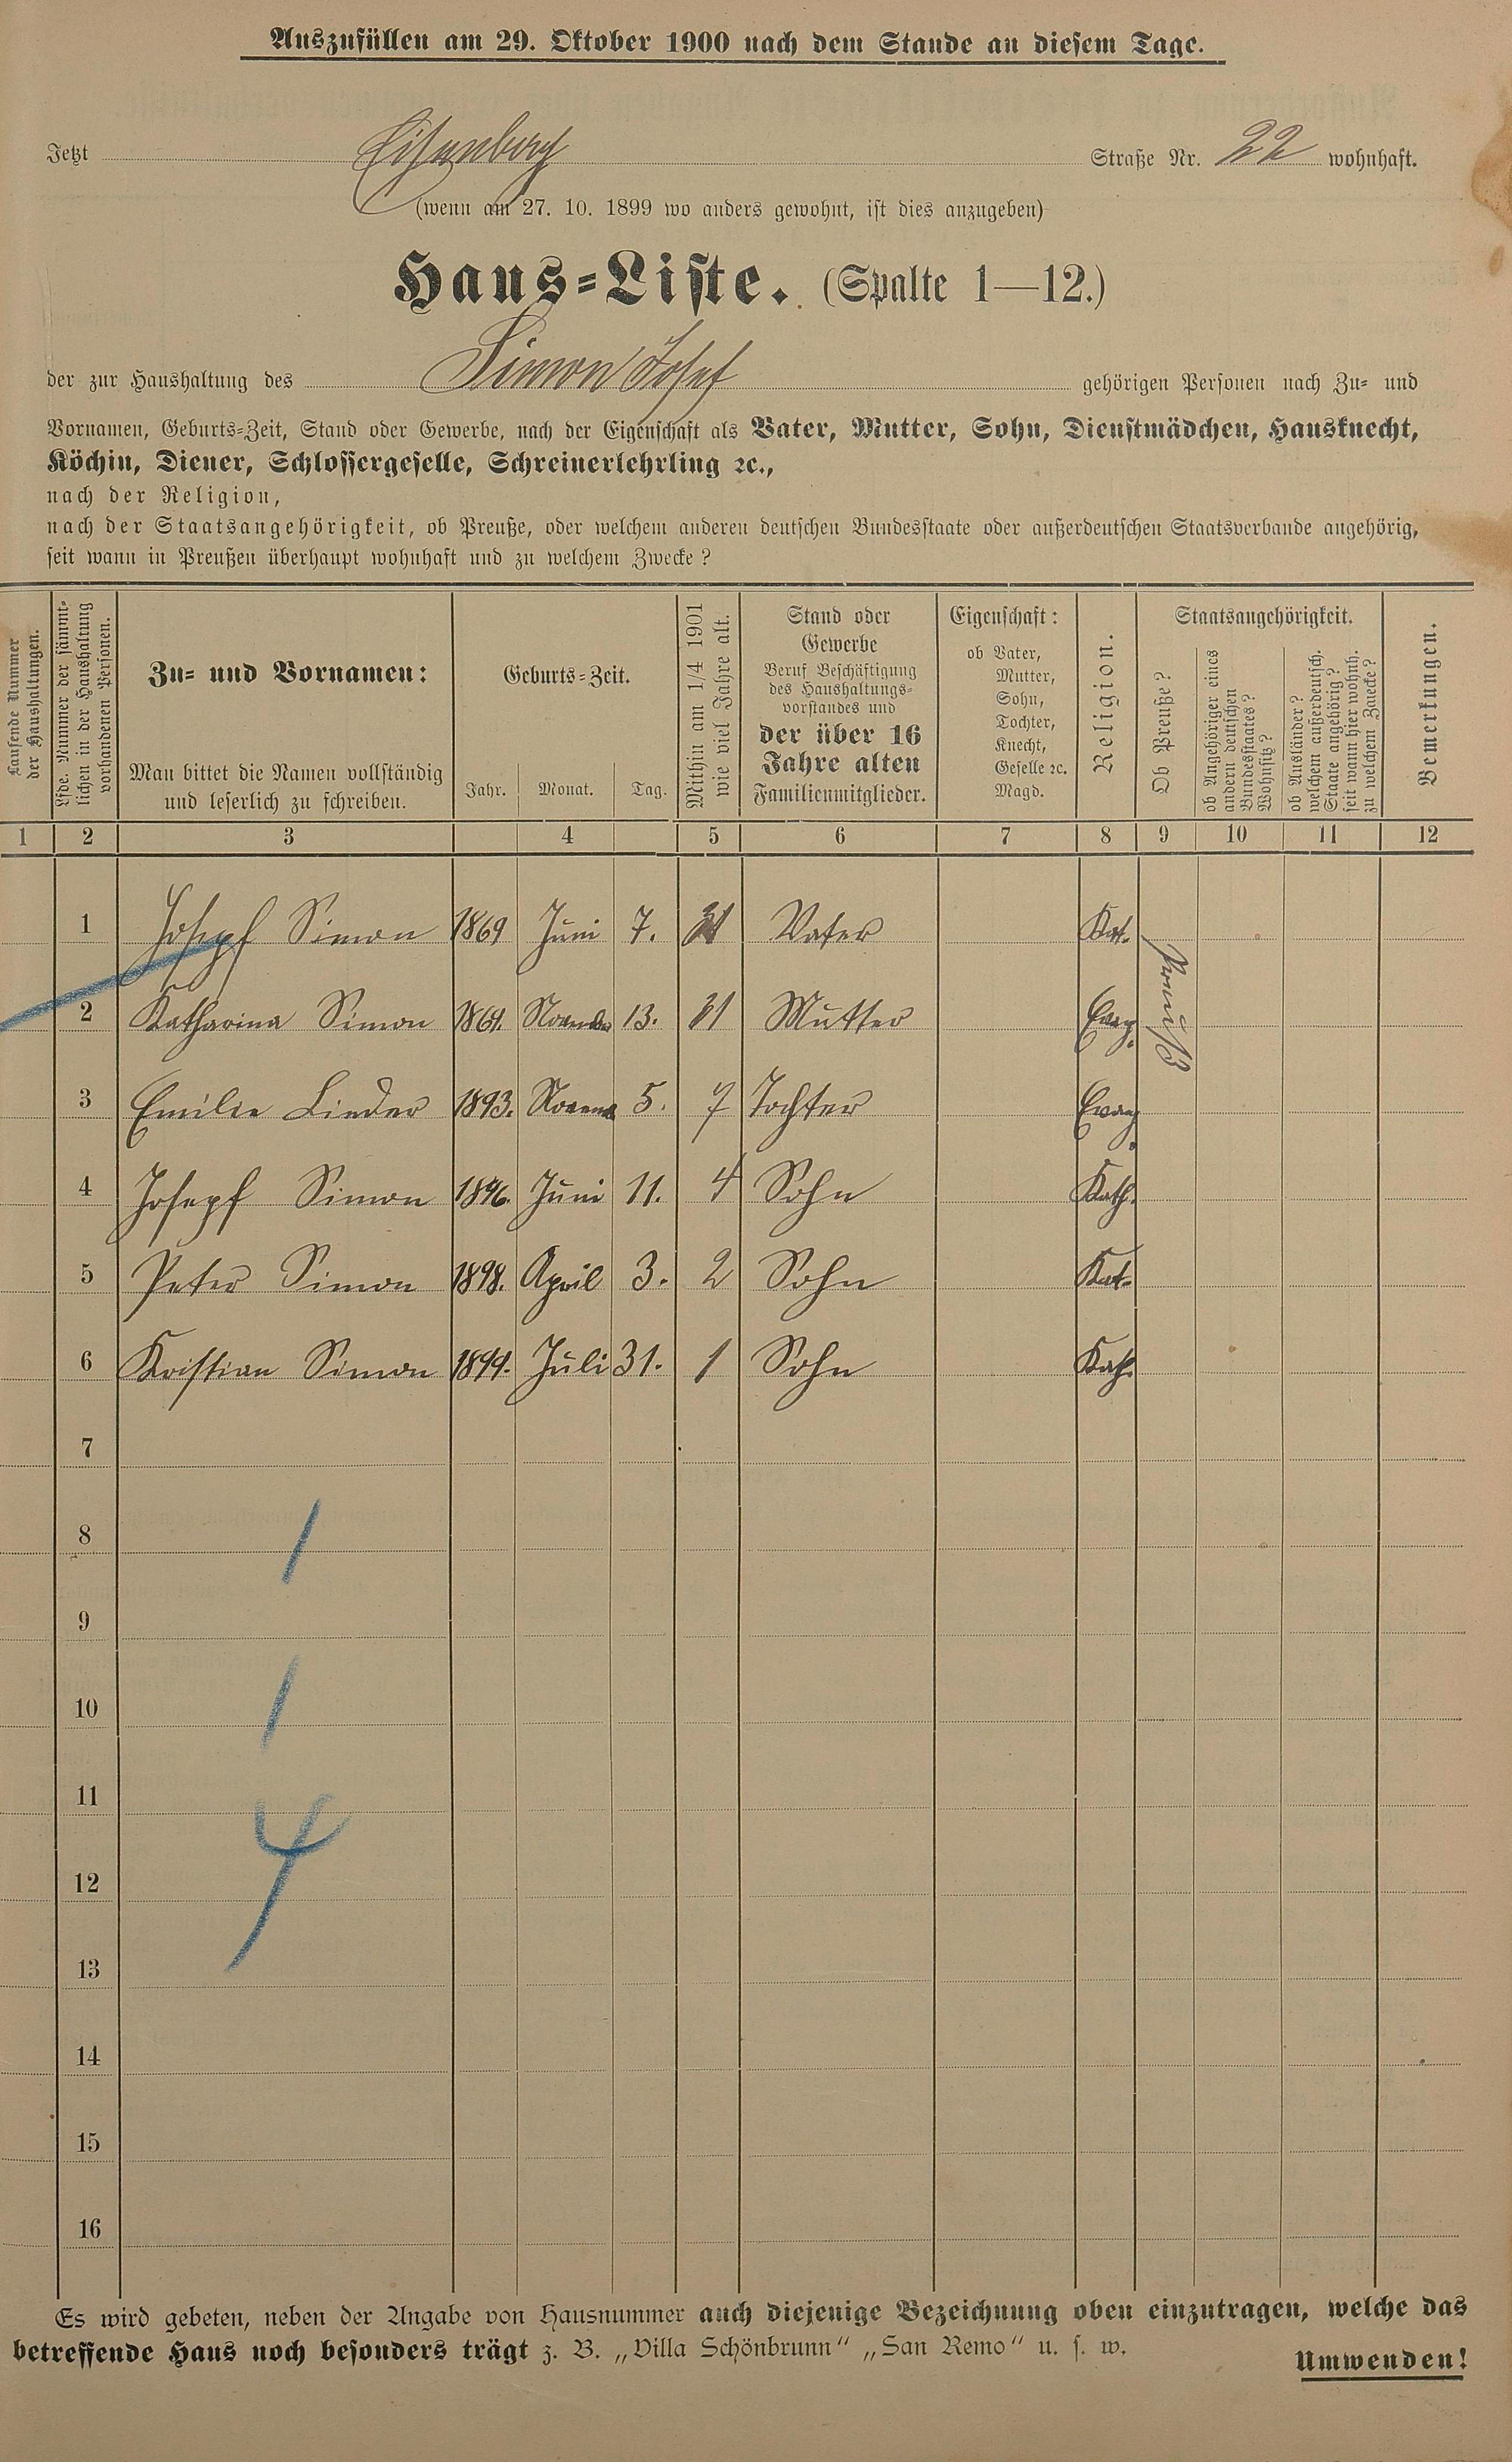 Auszufüllen am 29. Oktober 1900 nach dem Stande an diesem Tage.
Jetzt Eisenberg Straße Nr. 22 wohnhaft.
(wenn am 27. 10. 1899 wo anders gewohnt, ist dies anzugeben)
Haus-Liste. (Spalte 1—12.)
der zur Haushaltung des Simon Josef gehörigen Personen nach Zu- und
Vornamen, Geburts-Zeit, Stand oder Gewerbe, nach der Eigenschaft als Vater, Mutter, Sohn, Dienstmädchen, Hausknecht,
Köchin, Diener, Schlossergeselle, Schreinerlehrling ꝛc.,
nach der Religion,
nach der Staatsangehörigkeit, ob Preuße, oder welchem anderen deutschen Bundesstaate oder außerdeutschen Staatsverbande angehörig,
seit wann in Preußen überhaupt wohnhaft und zu welchem Zwecke?
Laufende Nummer
der Haushaltungen.
Lfde. Nummer der sämmt-
lichen in der Haushaltung
vorhandenen Personen.
Zu- und Vornamen:
Man bittet die Namen vollständig
und leserlich zu schreiben.
Geburts-Zeit.
Jahr. Monat. Tag.
Mithin am 1/4 1901
wie viel Jahre alt.
Stand oder
Gewerbe
Beruf Beschäftigung
des Haushaltungs-
vorstandes und
der über 16
Jahre alten
Familienmitglieder.
Eigenschaft:
ob Vater,
Mutter,
Sohn,
Tochter,
Knecht,
Geselle ꝛc.
Magd.
Religion.
Staatsangehörigkeit.
Ob Preuße?
ob Angehöriger eines
andern deutschen
Bundesstaates?
Wohnsitz?
ob Ausländer?
welchem außerdeutsch.
Staate angehörig?
seit wann hier wohnh.
zu welchem Zwecke?
Bemerkungen.
1 2 3 4 5 6 7 8 9 10 11 12
1 Josepf Simon 1869 Juni 7. 31 Vater Kat.
Preuß
2 Katharina Simon 1869. November 13. 31 Mutter Evag.
3 Emilie Linder 1893. Novemb 5. 7 Tochter Evang.
4 Josepf Simon 1896. Juni 11. 4 Sohn Kath.
5 Peter Simon 1898. April 3. 2 Sohn Kat.
6 Kristian Simon 1899. Juli 31. 1 Sohn Kath.
7
8 1
9
10 1
11
12 4
13
14
15
16
Es wird gebeten, neben der Angabe von Hausnummer auch diejenige Bezeichnung oben einzutragen, welche das
betreffende Haus noch besonders trägt z. B. „Villa Schönbrunn“ „San Remo“ u. s. w.
Umwenden!